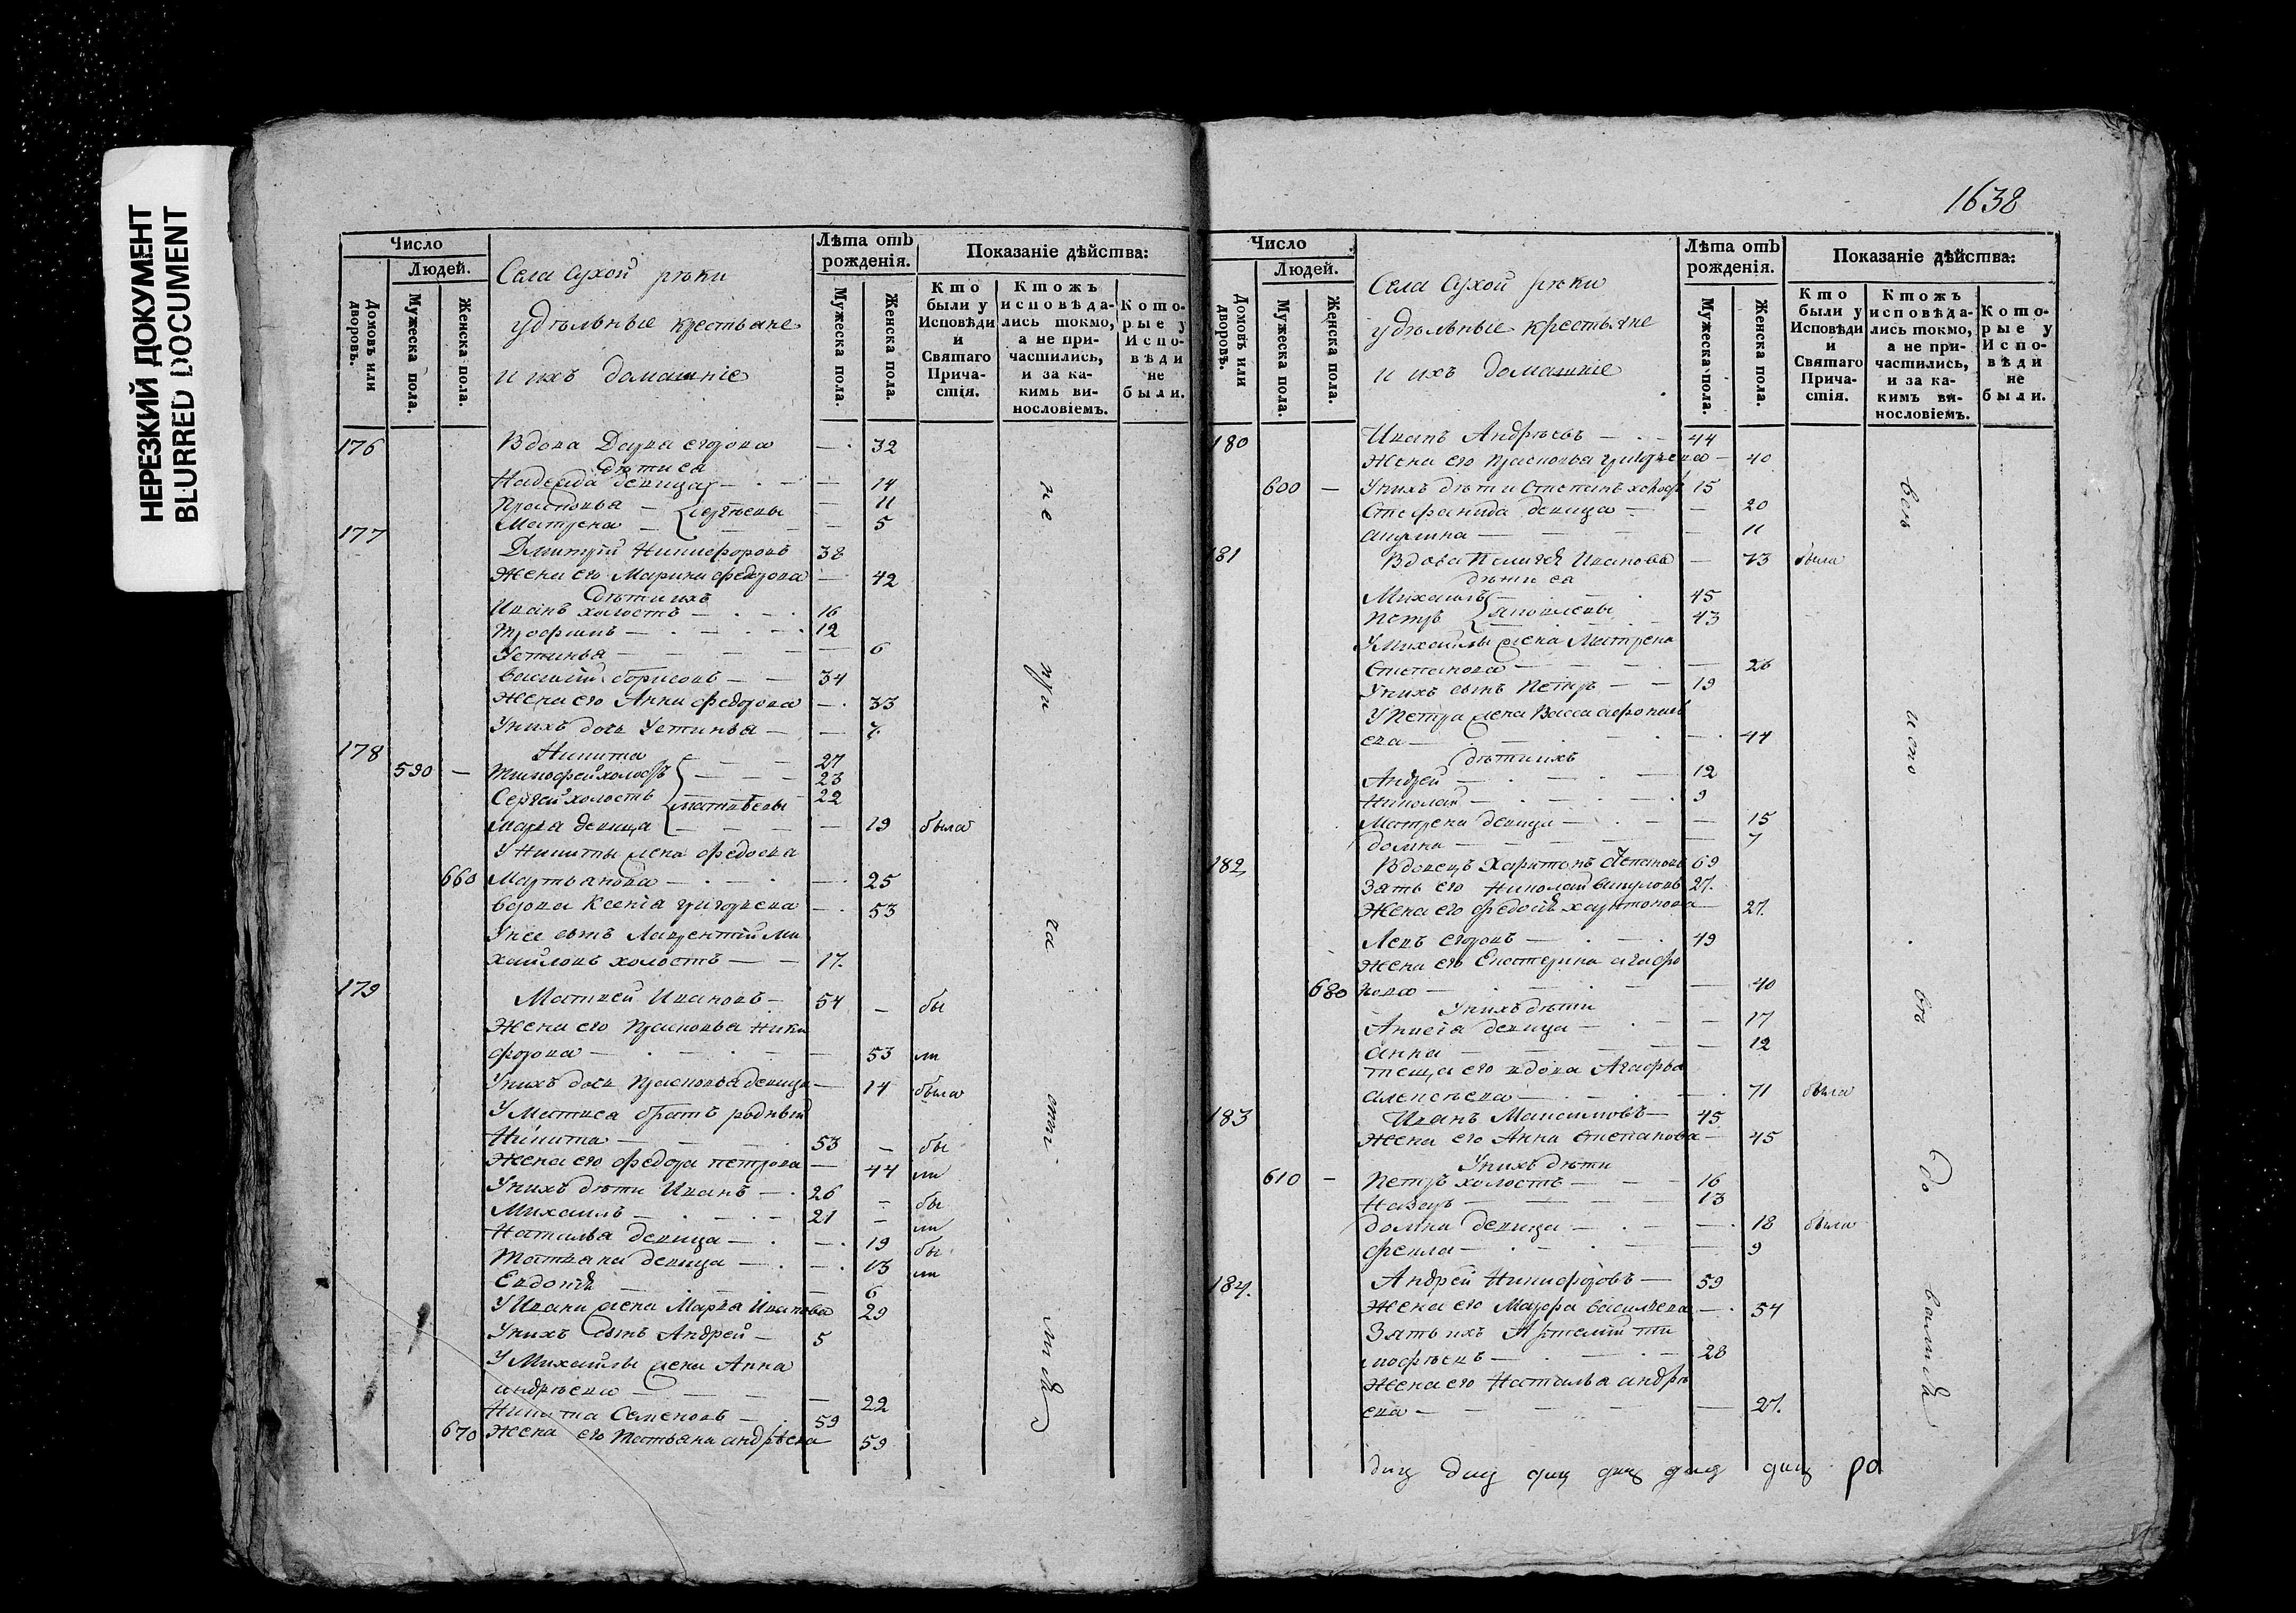 НЕРЕЗКИЙ ДОКУМЕНТ
BLURRED DOCUMENT
Число
Людей.
Домовъ или дворовъ.
Мужеска пола.
Женска пола.
Села Сухой рѣки
удѣльные крестьяне
и ихъ домашніе
Лѣта отъ рожденія.
Мужеска пола.
Женска пола.
Показаніе дѣйства:
Кто были у Исповѣди и Святаго Прича-стія.
Ктожъ исповѣда-лись токмо, а не при-частились, и за ка-кимъ ви-нословіемъ.
Кото-рые у Испо-вѣди не были.
176 Вдова Дарья Егорова — 32
дѣти еа
Надежда девица — 14
Прасковья — Сергѣевы 11
Матрена — 5
177 Дмитрій Никифоровъ 38
Жена его Марина Федорова — 42
дѣти ихъ
Иванъ холостъ — 16
Трофимъ — 12
Устинья — 6
Василій Борисовъ — 34
Жена его Анна Федорова — 33
У нихъ дочь Устинья — 7
178 Никита — 27
590 — Тимофей холостъ — 23
Сергей холостъ Матвѣевы 22
Марья девица — 19 была
У Никиты жена Федосья
660 Мартьянова — 25
вдова Ксенія Григорьева — 53
У нее сынъ Лаврентій Ми
хайловъ холостъ — 17.
179 Матвей Ивановъ — 54 — бы
Жена его Прасковья Ники
форова — 53 ли
У нихъ дочь Прасковья девица — 14 была
У Матвеа братъ родный
Никита — 53 — бы
Жена его Федора Петрова — 44 ли
У нихъ дѣти Иванъ — 26 — бы
Михаилъ — 21 — ли
Наталья девица — 19 бы
Татьяна девица — 13 ли
Евдокія — 6
У Ивана жена Марья Иванова 29
У нихъ сынъ Андрей — 5
У Михаилы жена Анна
Андрѣева — 22
Никита Семеновъ — 59
670 Жена его Татьяна Андрѣева 59
не
при
ча
сти
лись
1638
Число
Людей.
Домовъ или дворовъ.
Мужеска пола.
Женска пола.
Села Сухой рѣки
удѣльные крестьяне
и ихъ домашніе
Лѣта отъ рожденія.
Мужеска пола.
Женска пола.
Показаніе дѣйства:
Кто были у Исповѣди и Святаго Прича-стія.
Ктожъ исповѣда-лись токмо, а не при-частились, и за ка-кимъ ви-нословіемъ.
Кото-рые у Испо-вѣди не были.
180 Иванъ Андрѣевъ — 44
Жена его Прасковья Григорьева — 40
600 — У нихъ дѣти Степанъ холостъ 15
Стефанида девица — 20
Акулина — 11
181 Вдова Иванова — 73 была
дѣти еа
Михаилъ — 45
Петръ — 43
У Михаилы жена Матрена
Степанова — 26
У нихъ сынъ Петръ — 19
У Петра жена Васса
ева — 44
дѣти ихъ
Андрей — 12
Николай — 9
Матрена девица — 15
Домна — 7
182 Вдовецъ Харитонъ Степановъ 69
Зять его Николай 27.
Жена его Федосія Харитонова — 27.
Левъ Егоровъ — 49
Жена его Екатерина Агафо
680 нова — 40
У нихъ дѣти
Анисія девица — 17
Анна — 12
теща его вдова Агафья
Алексѣева — 71 была
183 Иванъ Максимовъ — 45
Жена его Анна Степанова — 45
У нихъ дѣти
610 — Петръ холостъ — 16
Назаръ — 13
Домна девица — 18 была
Фекла — 9
184. Андрей Никифоровъ — 59
Жена его Мавра Васильева — 54
Зять ихъ Артемій Ти
мофѣевъ — 28
Жена его Наталья Андрѣ
ева — 27.
ра